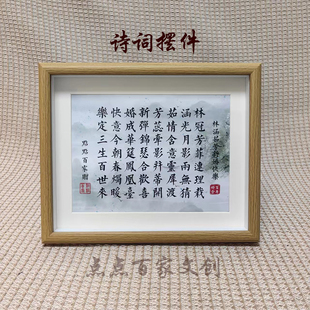 诗词摆件
林涵茹芳新婚快樂
林冠芳菲連理栽
涵光月影兩無猜
茹情含意靈犀渡
芳蕊牽影幷蒂開
新彈錦瑟合歡喜
婚成華筵鳳凰臺
快意今朝春燭暖
樂定三生百世來
點點百家謝
点点百家文创